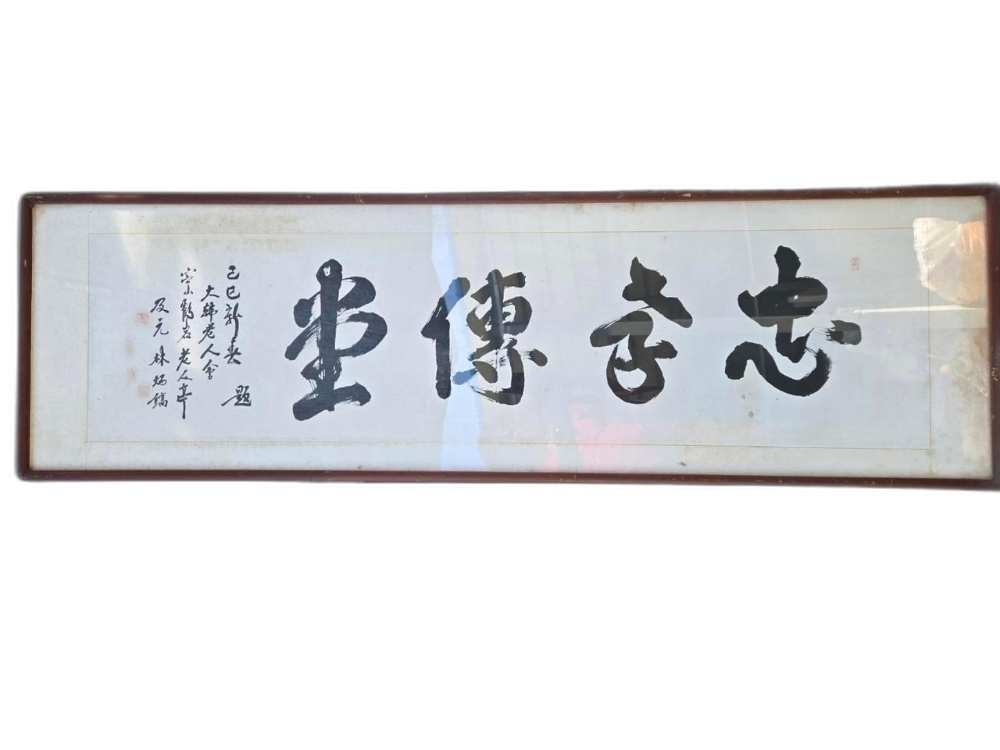 忠孝傳堂
己巳新春 題
大韓老人會
老人亭
及元 林炳鎬